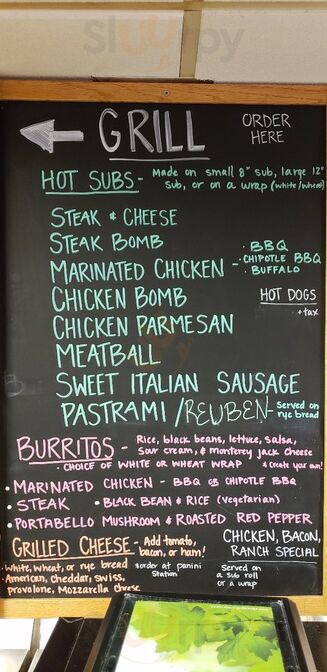 Sluurpy
GRILL
ORDER HERE
HOT SUBS - Made on small 8" sub, large 12"
sub, or on a wrap (white/wheat)
STEAK & CHEESE
STEAK BOMB
MARINATED CHICKEN - · BBQ
· CHIPOTLE BBQ
· BUFFALO
CHICKEN BOMB
HOT DOGS
+ tax
CHICKEN PARMESAN
MEATBALL
SWEET ITALIAN SAUSAGE
PASTRAMI / REUBEN - Served on
rye bread
BURRITOS - Rice, black beans, lettuce, salsa,
sour cream, & monterey jack cheese
· CHOICE OF WHITE OR WHEAT WRAP * Create your own!
· MARINATED CHICKEN - BBQ OR CHIPOTLE BBQ
· STEAK · BLACK BEAN & RICE (vegetarian)
· PORTABELLO MUSHROOM & ROASTED RED PEPPER
GRILLED CHEESE - Add tomato,
bacon, or ham!
· White, wheat, or rye bread
· American, cheddar, swiss,
provolone, Mozzarella cheese
*order at panini
station
CHICKEN, BACON,
RANCH SPECIAL
Served on
a sub roll
or a wrap